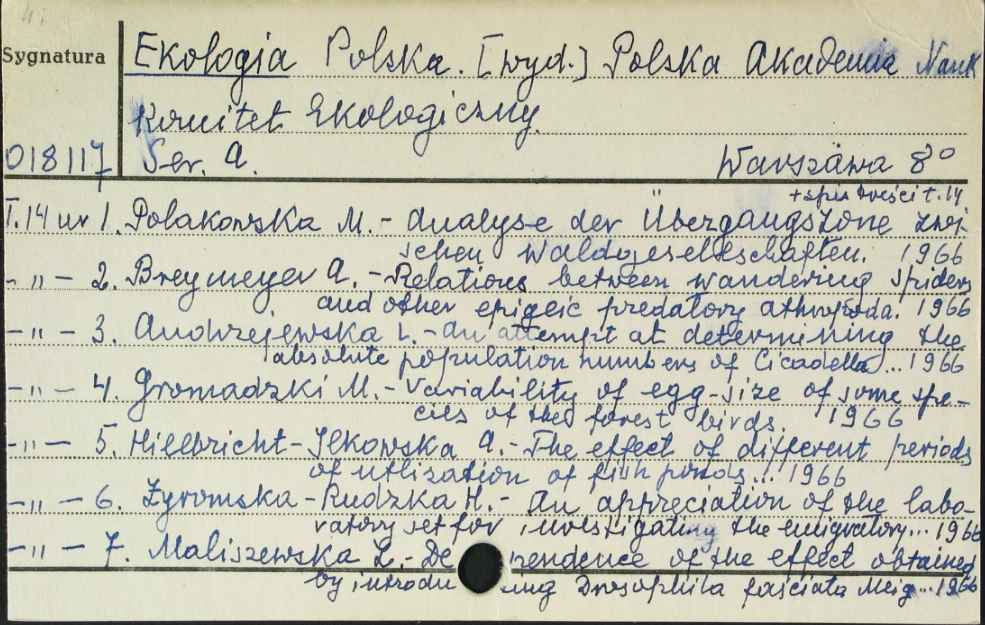 Sygnatura
Ekologia Polska. [wyd.] Polska Akademia Nauk
Komitet Ekologiczny.
018117 Ser. A. Warszawa 8°
+ spis treści t. 14
T. 14 nr 1. Polakowska M. - Analyse der Übergangszone zwi-
schen Waldgesellschaften. 1966
- " - 2. Breymeyer A. - Relations between wandering spiders
and other epigeic predatory athropoda. 1966
- " - 3. Andrzejewska L. - An attempt at determining the
absolute population numbers of Cicadella... 1966
- " - 4. Gromadzki M. - Variability of egg-size of some spe-
cies of the forest birds. 1966
- " - 5. Hillbricht-Ilkowska A. - The effect of different periods
of utlisation of fish ponds... 1966
- " - 6. Żyromska-Rudzka H. - An appreciation of the labo-
ratory set for investigating the emigratory... 1966
- " - 7. Maliszewska Z. - De pendence of the effect obtained
by introdu ing Drosophila fasciata Meig... 1966